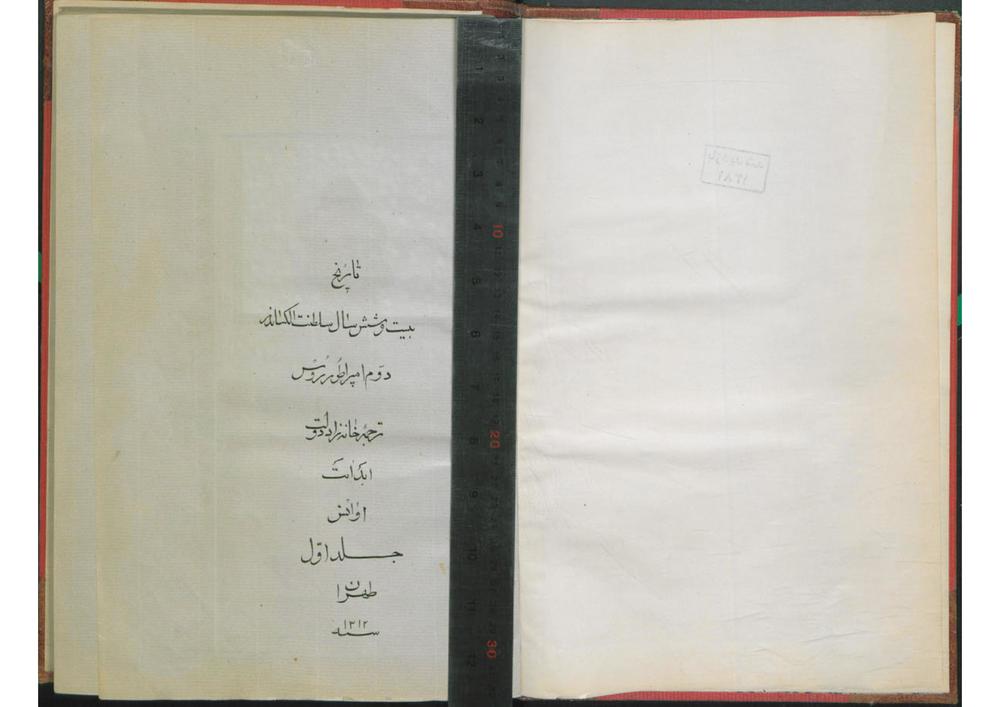 تاریخ
بیست و شش سال سلطنت الکساندر
دوم امپراطور روس
ترجمه خانه زاد دولت
ابد آیت
اوانس
جلد اول
طهران
سنه ۱۳۱۲
1
2
3
4
5
6
7
8
9
10
11
12
10
20
30